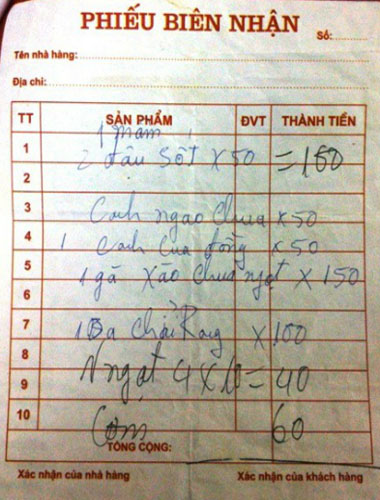 PHIẾU BIÊN NHẬN
Số:
Tên nhà hàng:
Địa chỉ:
TT SẢN PHẨM ĐVT THÀNH TIỀN
1 1 mắm
2 đậu sốt x 50 = 150
2
3 Canh ngao chua x 50
4 1 Canh Cua đồng x 50
5 1 gà xào chua ngọt x 150
6
7 1 Ba chỉ Rang x 100
8 N ngọt 4 x 10 = 40
9
10 Cơm 60
TỔNG CỘNG:
Xác nhận của nhà hàng Xác nhận của khách hàng